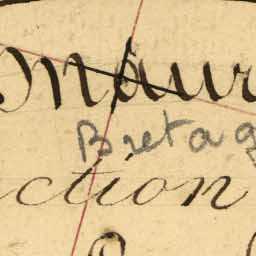 maur
Bretag
ction